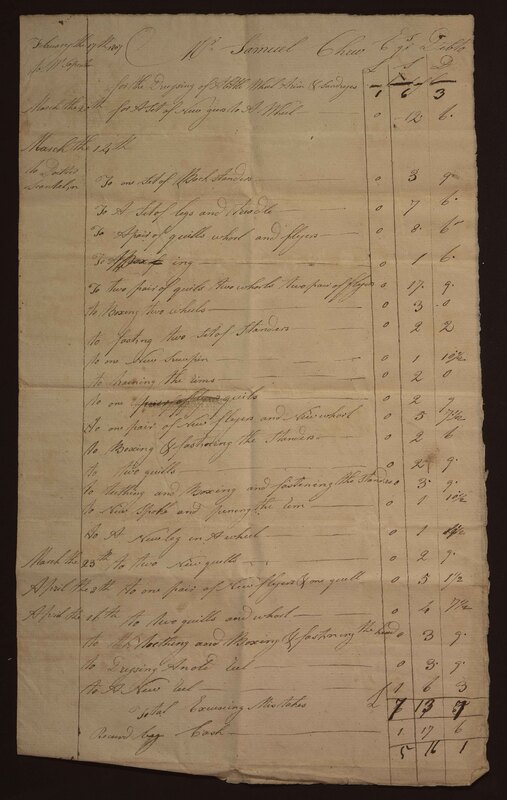 February the 17th 1807 Mr Samuel Chew Esqr Debto
for the Dressing of A Old Wheel Rim & Sundryes 1 6 3
March the for A Set of New to A Wheel 0 12 6
March the 14th
to one Set of Back Standers 0 3 9
To A Set of legs and treadle 0 7 6
To A pair of quills whorl and flyers 0 8 6
To ing 0 1 6
To two pair of quils two whorls two pair of flyers 0 17 9
to Boxing two wheels 0 3 0
to fasting two Set of Standers 0 2 2
to one New 0 1 10½
to the rims 0 2 0
to one quils 0 2 9
to one pair of New flyers and New whorl 0 5 7½
to Boxing & fastening the Standers 0 2 6
to two quills 0 2 9
to and Boxing and fastening the Standers 0 3 9
to New Spoke and the rim 0 1 10½
to A New leg in A wheel 0 1
March the 23th to two New quills 0 2 9
April the 8th to one pair of New flyers & one quill 0 5 1½
April the to two quills and whorl 0 4 7½
to the and Boxing & fastning the head 0 3 9
to Dressing 0 3 9
to A New 1 6 3
Total Excusing Mistakes £ 7 13 7
Received Cash 1 17 6
5 16 1